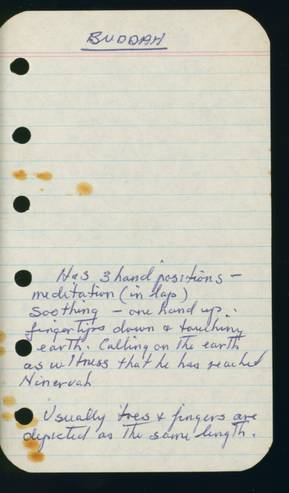 BUDDAH
Has 3 hand positions -
meditation (in lap)
Soothing - one hand up.
fingertips down & touching
earth. Calling on the earth
as witness that he has reached
Ninervah
Usually toes & fingers are
depicted as the same length.